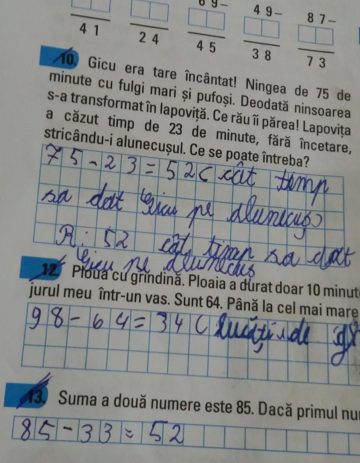 69- 49- 87-
41 24 45 38 73
10. Gicu era tare încântat! Ningea de 75 de
minute cu fulgi mari și pufoși. Deodată ninsoarea
s-a transformat în lapoviță. Ce rău îi părea! Lapovița
a căzut timp de 23 de minute, fără încetare,
stricându-i alunecușul. Ce se poate întreba?
75-23=52( cât timp
sa dat Gicu pe alunecuș)
R: 52 cât timp sa dat
Gicu pe alunecuș
12. Plouă cu grindină. Ploaia a durat doar 10 minut
jurul meu într-un vas. Sunt 64. Până la cel mai mare
98-64=34( bucăți de
13. Suma a două numere este 85. Dacă primul nu
85-33=52